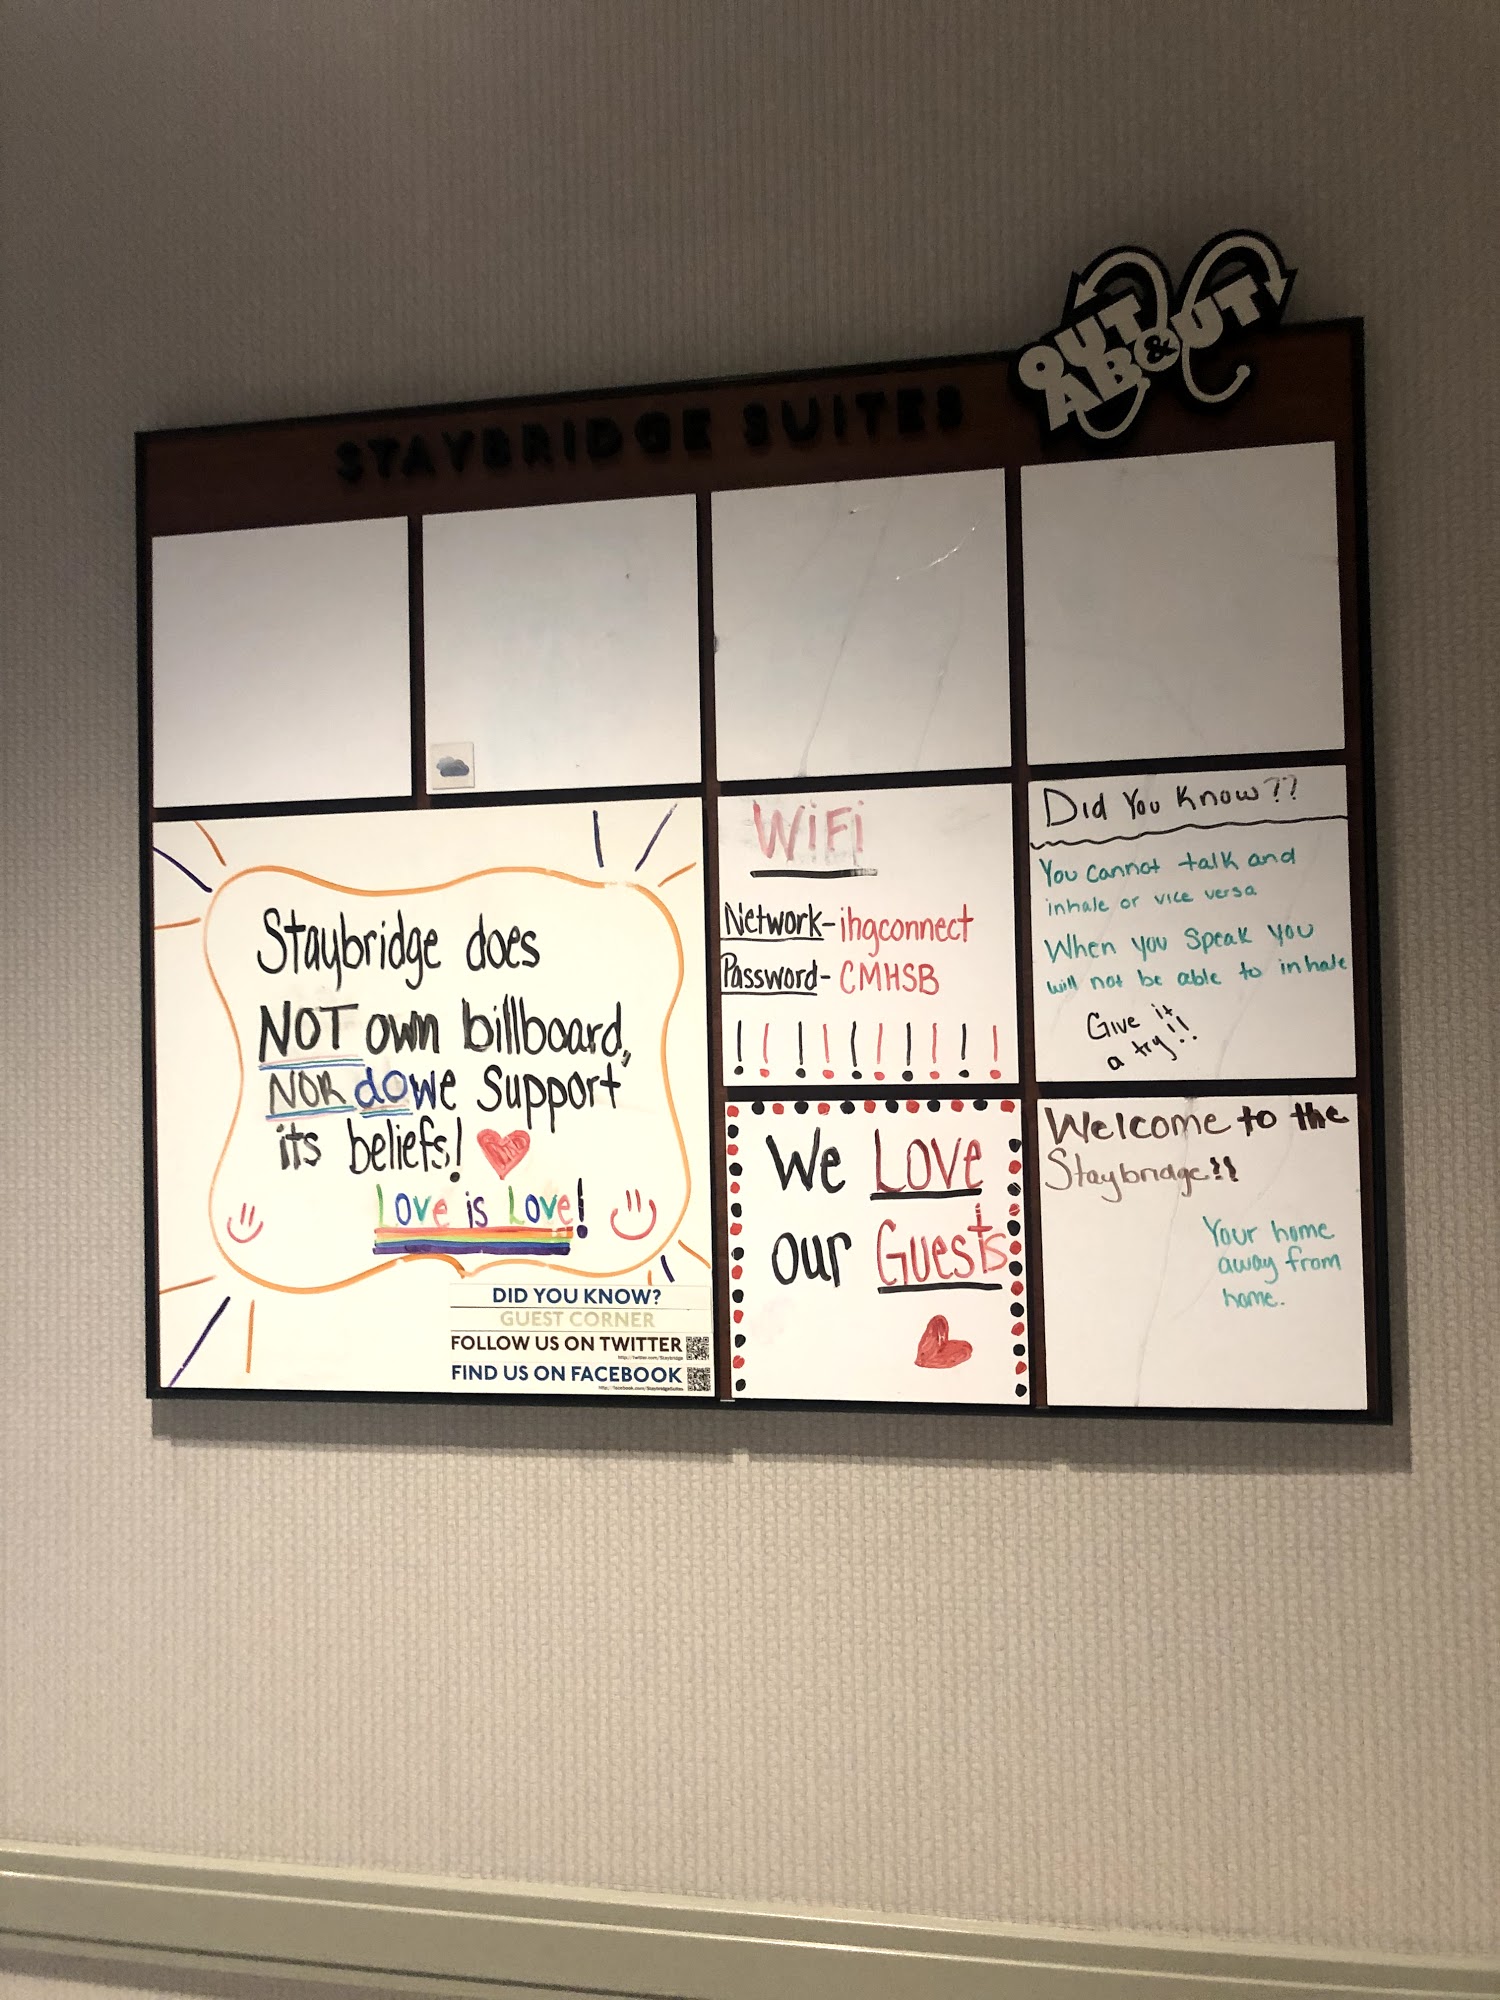 STAYBRIDGE SUITES
OUT
& ABOUT
Staybridge does
NOT own billboard,
NOR do we support
its beliefs!
Love is Love!
DID YOU KNOW?
GUEST CORNER
FOLLOW US ON TWITTER
http://twitter.com/Staybridge
FIND US ON FACEBOOK
http://facebook.com/StaybridgeSuites
WiFi
Network-ihgconnect
Password-CMHSB
! ! ! ! ! ! ! ! ! !
We Love
our Guests
Did You Know??
You cannot talk and
inhale or vice versa
When you speak you
will not be able to inhale
Give it
a try!!
Welcome to the
Staybridge!!
Your home
away from
home.